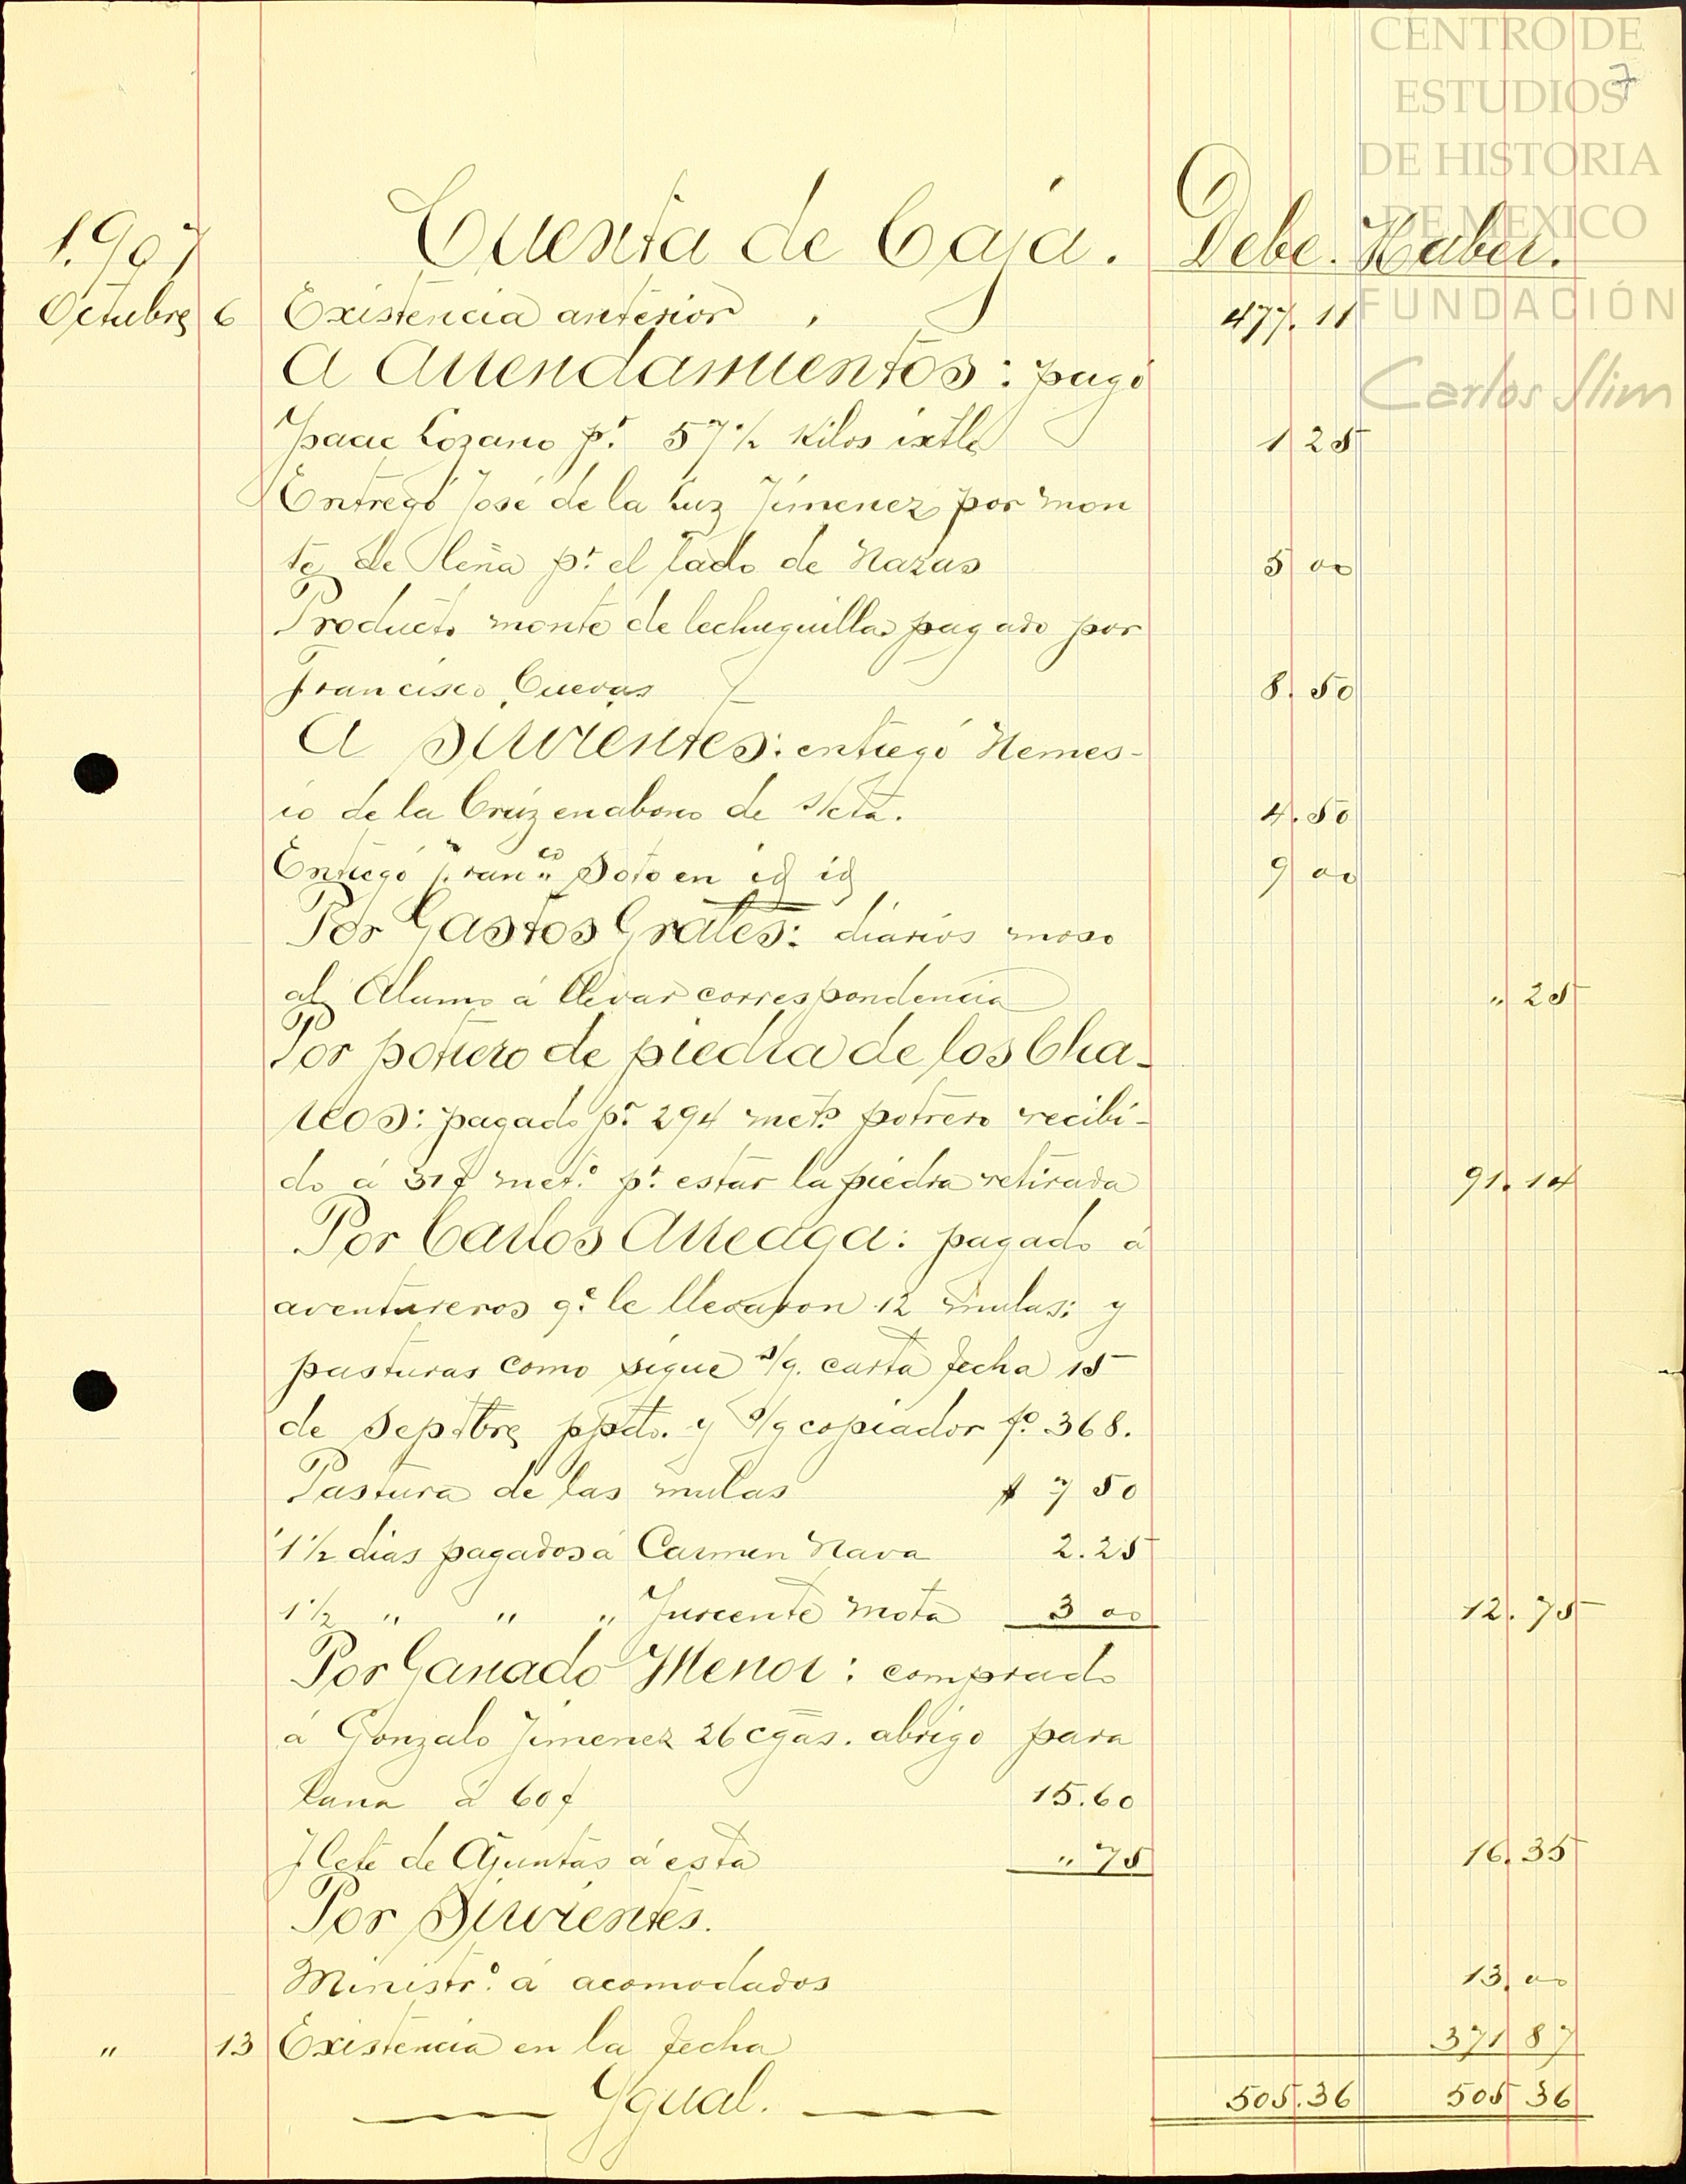 CENTRO DE
ESTUDIOS
DE HISTORIA
DE MEXICO
FUNDACIÓN
Carlos Slim
7
1.907 Cuenta de Caja. Debe. Haber.
Octubre 6 Existencia anterior 477.11
A Arrendamientos: pagó
Isaac Lozano pr. 57 1/2 Kilos ixtle 1 25
Entregó José de la Luz Jimenez por mon
te de leña pr. el lado de Nazas 5 00
Producto monte de lechuguilla pagado por
Francisco Cuevas 8.50
A Sirvientes: entregó Nemes-
io de la Crúz en abono de s/cta. 4.50
Entregó Franco Soto en id id 9 00
Por Gastos Grales: diarios moso
al Alamo á llevar correspondencia " 25
Por potrero de piedra de los Cha-
rcos: pagado pr. 294 mets. potrero recibi-
do á 31¢ met.o pr. estar la piedra retirada 91.14
Por Carlos Arreaga: pagado á
aventureros qe. le llevaron 12 mulas; y
pasturas como sigue s/g. carta fecha 15
de Septbre ppdo. y s/g copiador fo. 368.
Pastura de las mulas $ 7 50
1 1/2 dias pagados á Carmen Nava 2.25
1 1/2 " " " Inocente Mota 3 00 12.75
Por Ganado Menor: comprado
á Gonzalo Jimenez 26 cgas. abrigo para
lana á 60¢ 15.60
Flete de Ajuntas á esta " 75 16.35
Por Sirvientes.
Ministr.o á acomodados 13.00
" 13 Existencia en la fecha 371 87
Ygual. 505.36 505 36